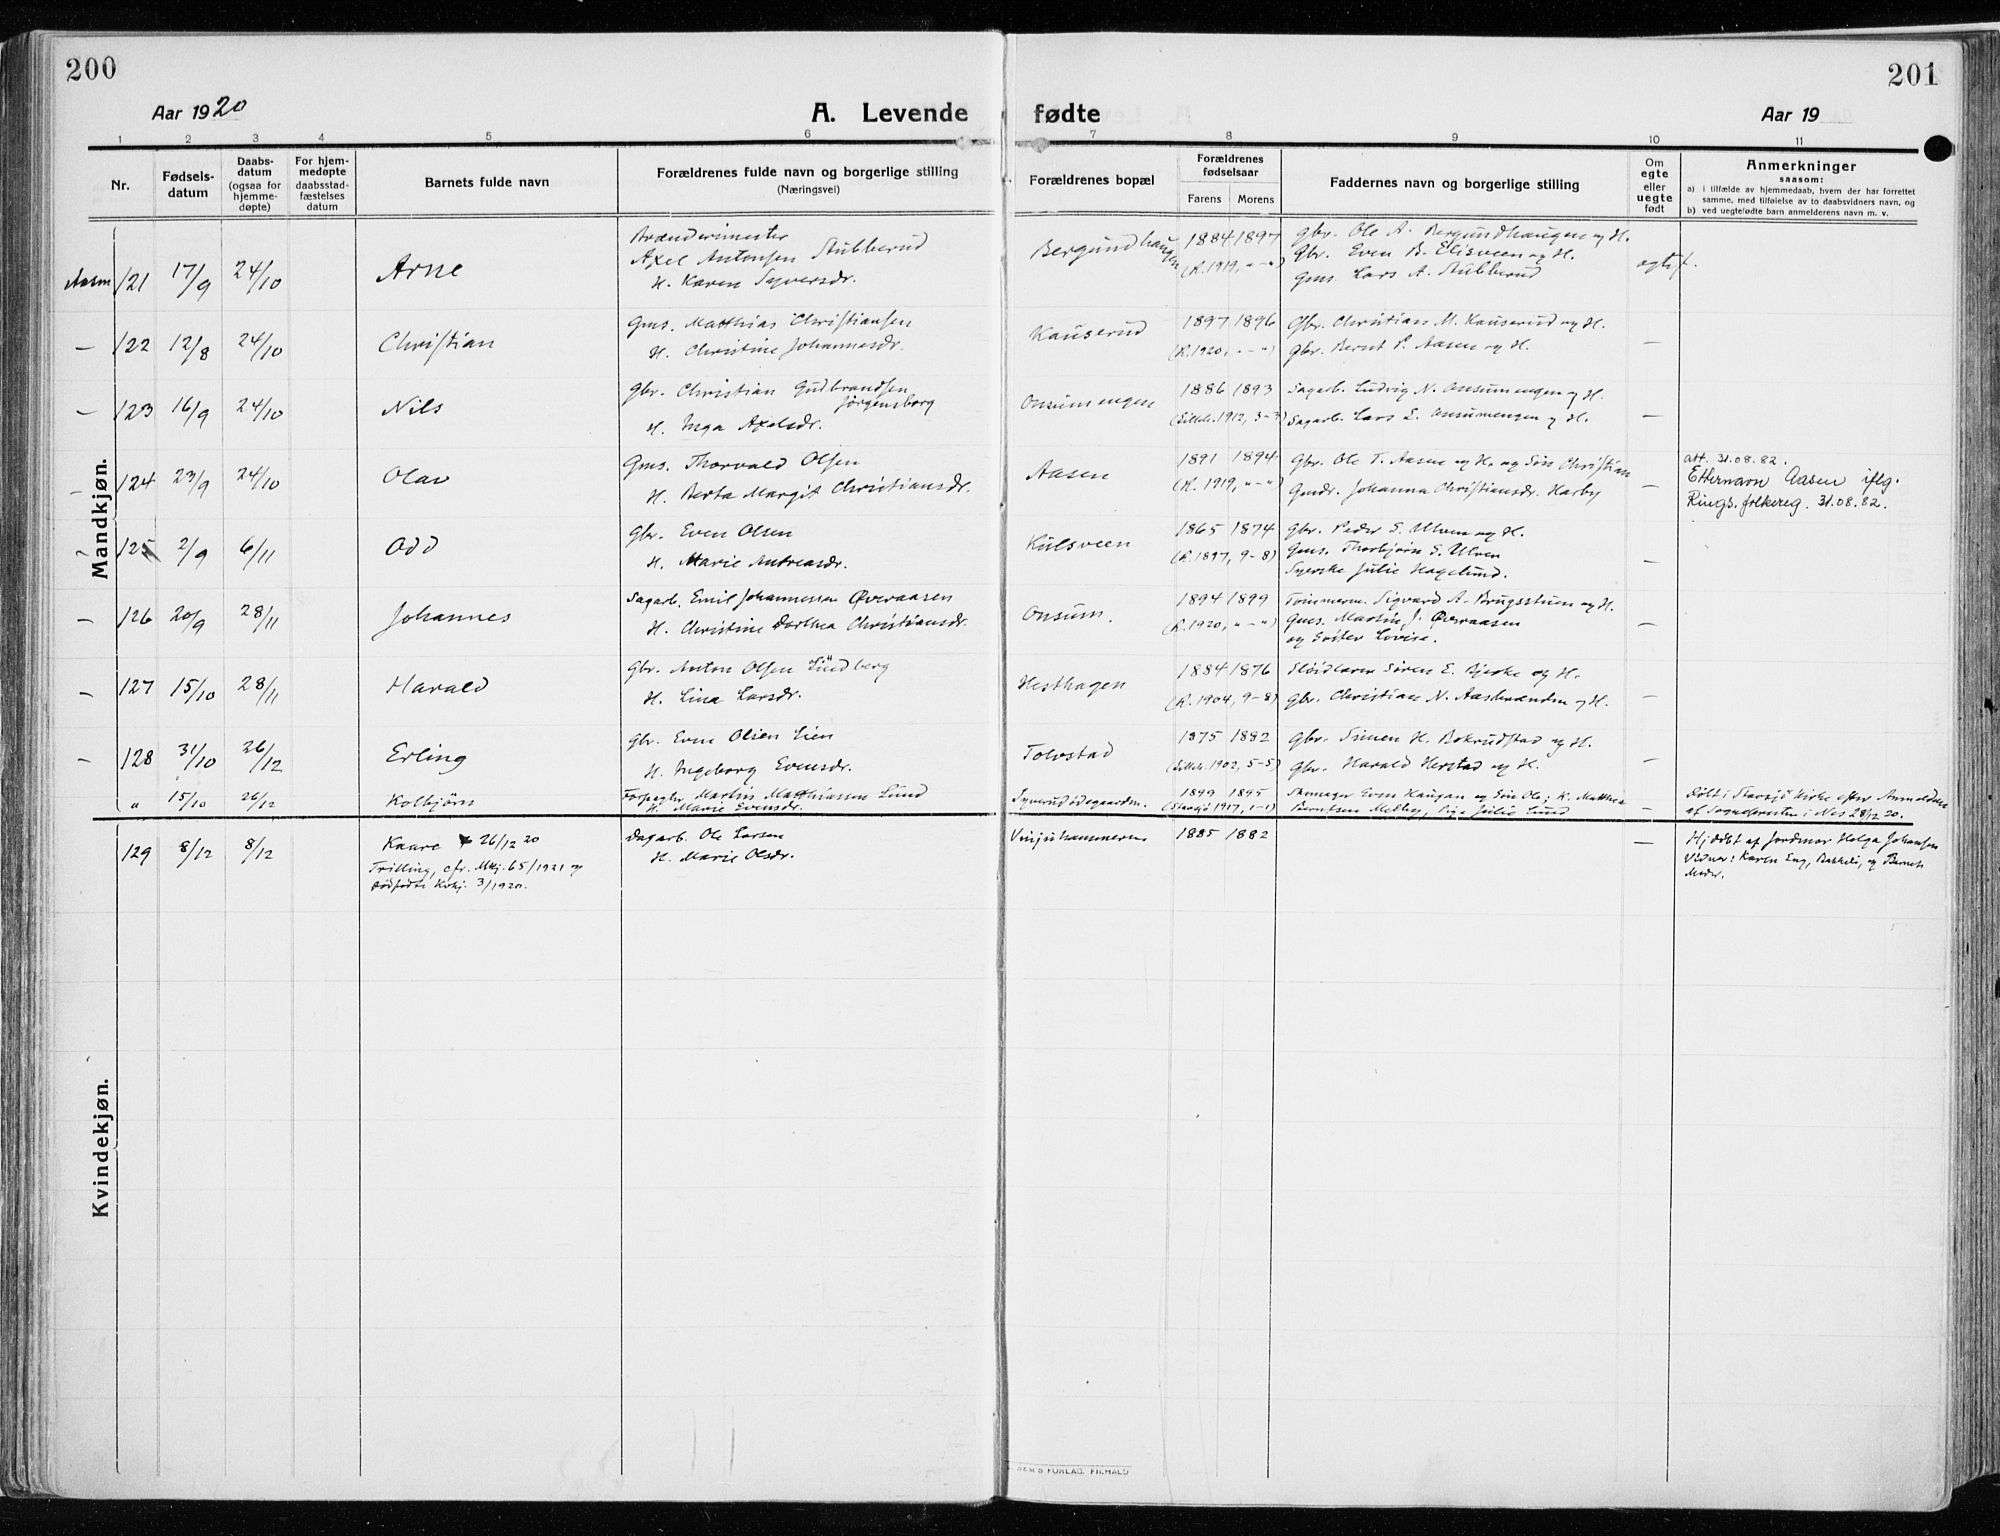 200
201
Aar 1920
A. Levende fødte
Aar 19
1 2 3 4 5 6 7 8 9 10 11
Nr.
Fødsels-
datum
Daabs-
datum
(ogsaa for
hjemme-
døpte)
For hjem-
medøpte
daabsstad-
fæstelses
datum
Barnets fulde navn
Forældrenes fulde navn og borgerlige stilling
(Næringsvei)
Forældrenes bopæl
Forældrenes
fødselsaar
Farens Morens
Faddernes navn og borgerlige stilling
Om
egte
eller
uegte
født
Anmerkninger
saasom:
a) i tilfælde av hjemmedaab, hvem der har forrettet
samme, med tilføielse av to daabsvidners navn, og
b) ved uegtefødte barn anmelderens navn m. v.
Mandkjøn.
121 17/9 24/10 Arne
Axel Antonsen Stubberud
H. Karen Syversdr.
Bergundhaugen
1884 1897
(K. 1919, "-")
Gbr. Ole A. Bergundhaugen og H.
Gbr. Even B. Elisveen og H.
Gms. Lars A. Stubberud
egtef.
— 122 12/8 24/10 Christian
Gms. Matthias Christiansen
H. Christine Johannesdr.
Kauserud
1897 1896
(K. 1920, "-")
Gbr. Christian M. Kauserud og H.
Gbr. Bernt P. Aasen og H.
—
— 123 16/9 24/10 Nils
Gbr. Christian Gudbrandsen
Jørgensborg
H. Inga Axelsdr.
Onsumengen
1886 1893
1912, 3-3)
Sagarb. Ludvig N. Onsumengen og H.
Sagarb. Lars L. Onsumengen og H.
—
— 124 23/9 24/10 Olav
Gms. Thorvald Olsen
H. Berta Margit Christiansdr.
Aasen
1891 1894
(K. 1919, "-")
Gbr. Ole T. Aasen og H. og Søn Christian
Johanna Christiansdr. Harby
—
att. 31.08.82.
Etternavn Aasen iflg.
Rings. folkereg. 31.08.82.
125 2/9 6/11 Odd
Gbr. Even Olsen
H. Marie Andreasdr.
Kulsveen
1865 1874
(K. 1897, 9-8)
Gbr. Peder S. Ulven og H.
Gms. Thorbjørn S. Ulven
Syerske Julie Hagelund.
—
— 126 20/9 28/11 Johannes
Sagarb. Emil Johannessen Øveraasen
H. Christine Dorthea Christiansdr.
Onsum.
1894 1899
(K. 1920, "-")
Tømmerm. Sigvard A. Brugsstuen og H.
Gms. Martin J. Øveraasen
og Søster Lovise.
—
— 127 15/10 28/11 Harald
Gbr. Anton Olsen Lundberg
H. Lina Larsdr.
Hesthagen
1884 1876
(K. 1904, 9-8)
Sløidlærer Søren E. Bjerke og H.
Gbr. Christian N. Aasbrænden og H.
—
— 128 31/10 26/12 Erling
Gbr. Even Olsen Lien
H. Ingeborg Evensdr.
Tolvstad
1875 1882
1902, 5-5)
Gbr. Simen H. Bokrudstad og H.
Gbr. Harald Herstad og H.
—
" 15/10 26/12 Kolbjørn
Martin Matthiassen Lund
H. Marie Evensdr.
1899 1895
1917, 1-1)
Skomager Even Haugan og Søn Ole; K. Matthea
Berntsen Melby, Pige Julie Lund
—
Døbt i Stavsjø Kirke efter Anmeldelse
af Sognepresten i Nes 28/12 20.
Kvindekjøn.
129 8/12 8/12 Kaare † 26/12 20
Trilling, cfr. Mkj. 65/1921 og
dødfødte Kvkj. 3/1920.
Dagarb. Ole Larsen
H. Marie Olsdr.
Vinjuhammeren
1885 1882
—
Hj.døbt af Jordmor Helga Johansen
Vidner: Karen Eng, Bakkeli, og Barnets
Moder.